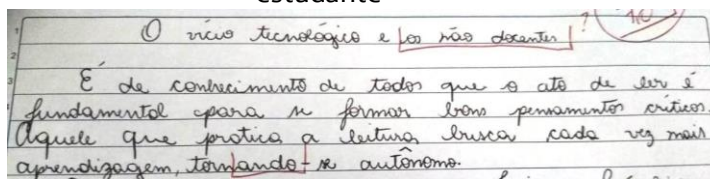 estudante
O vicio tecnológico e os não docentes ?
É de conhecimento de todos que o ato de ler é
fundamental para se formar bons pensamentos críticos.
Aquele que pratica a leitura busca cada vez mais
aprendizagem, tornando-se autônomo.